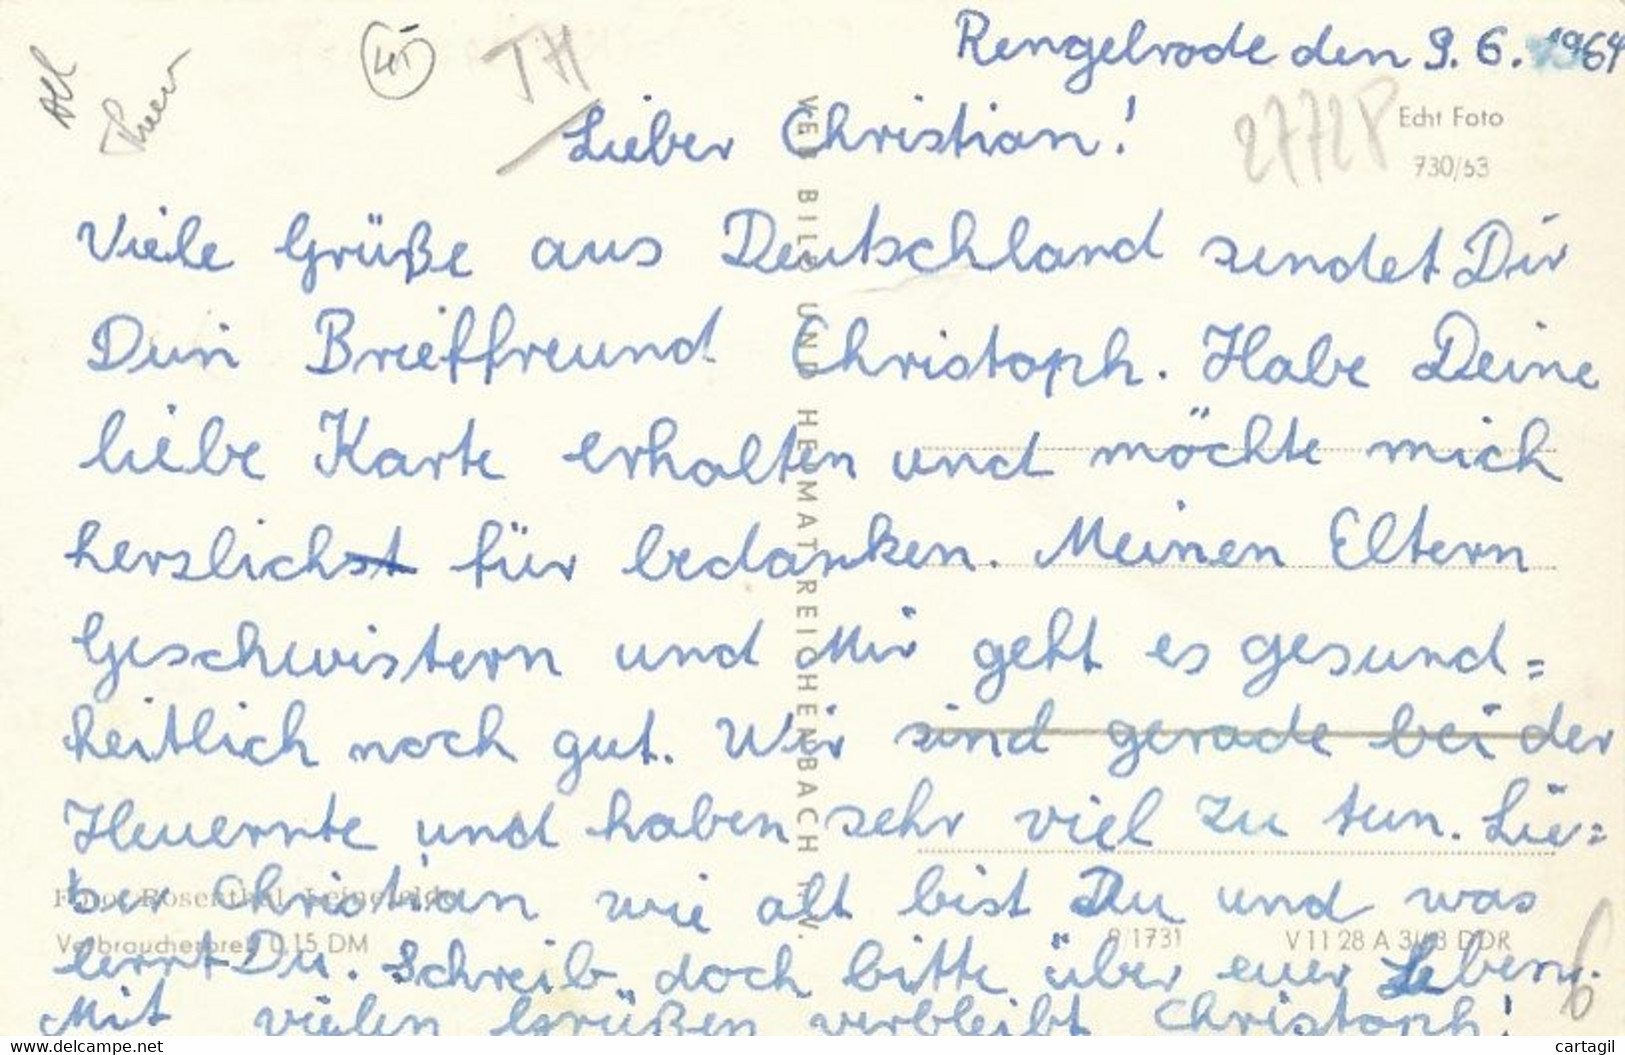 Rengelrode den 9. 6. 1964
All
41
TH
Lieber Christian!
2772P
Echt Foto
730/63
Viele Grüße aus Deutschland sendet Dir
Dein Brieffreund Christoph. Habe Deine
liebe Karte erhalten und möchte mich
herzlichst für bedanken. Meinen Eltern
Geschwistern und Mir geht es gesund=
heitlich noch gut. Wir sind gerade bei der
Heuernte und haben sehr viel zu tun. Lie=
ber Christian wie alt bist Du und was
lernt Du. Schreib doch bitte über euer Leben.
Mit vielen Grüßen verbleibt Christoph!
VEB BILD UND HEIMAT REICHENBACH I. V.
Foto: Rosenthal, Leinefelde
Verbraucherpreis 0,15 DM
9/1731
V 11 28 A 3/63 DDR
6
www.delcampe.net
cartagil